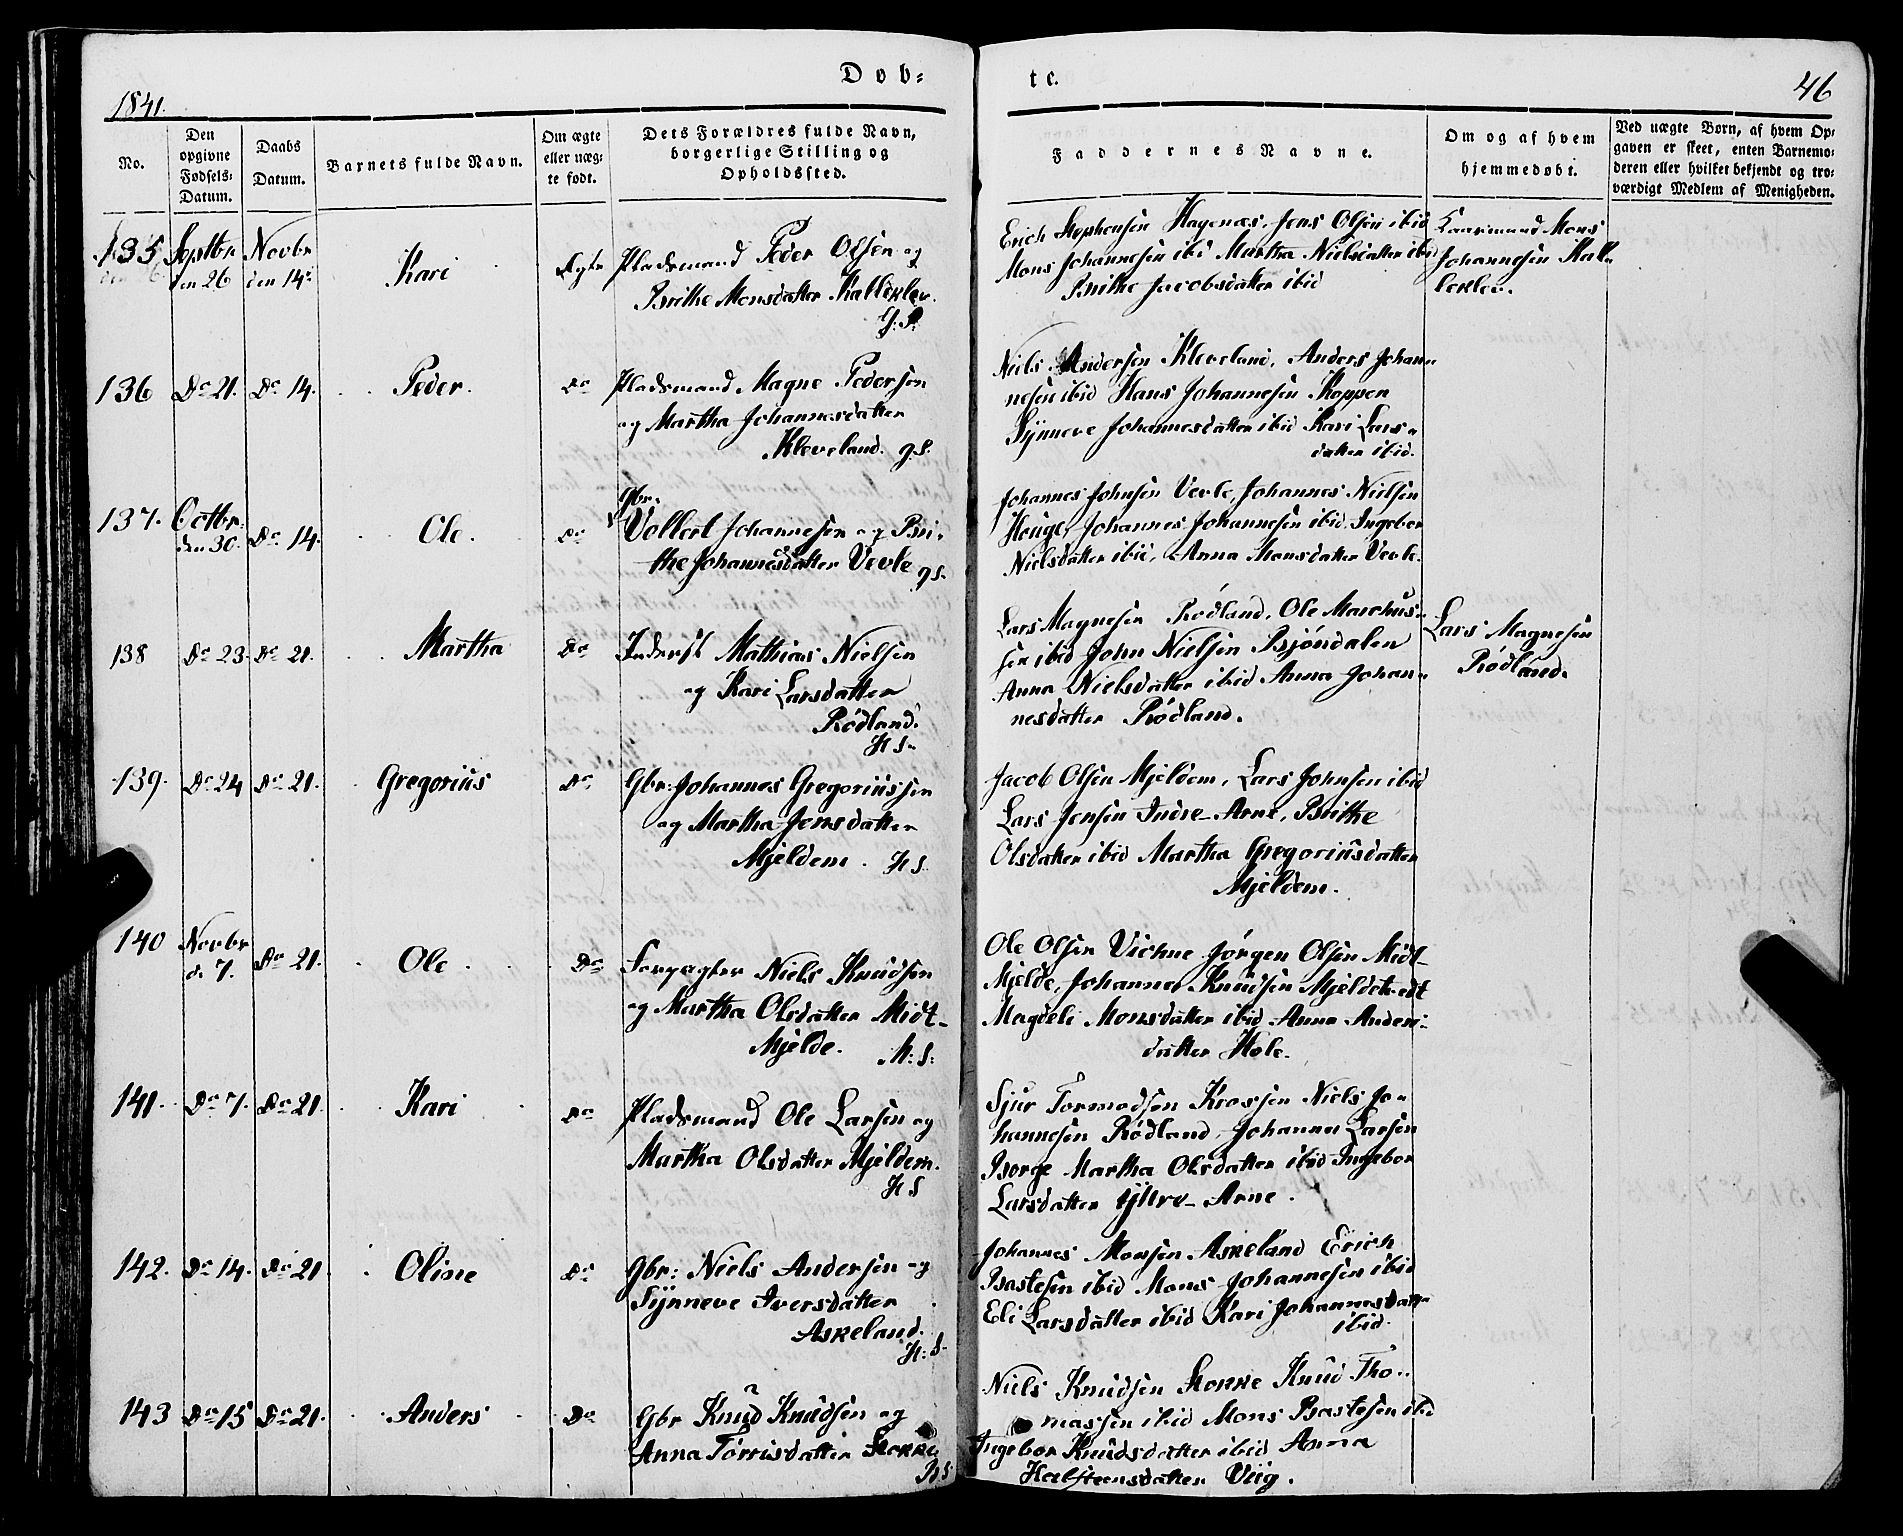 Døb=
te.
46
1841.
No.
Den opgivne Fødsels-Datum.
Daabs Datum.
Barnets fulde Navn.
Om ægte eller uæg-te født.
Dets Forældres fulde Navn, borgerlige Stilling og Opholdssted.
Faddernes Navne.
Om og af hvem hjemmedøbt.
Ved uægte Børn, af hvem Op-
gaven er skeet, enten Barnemo-
deren eller hvilket bekjendt og tro-
værdigt Medlem af Menigheden.
135 Septbr den 26 Novbr den 14de Kari Ægte
Pladsmand Peder Olsen og
Brithe Monsdatter Kalleklev.
Erich Stephensen Hagenæs, Jens Olsen ibid
Mons Johannesen ibi Martha Nielsdatter ibid
Brithe Jacobsdatter ibid
Laarmand Mons
Johannesen Kal-
leklev.
136 Do 21. Do 14. Peder. Do
Pladsmand Magne Pedersen
og Martha Johannesdatter
Kleveland. g.S.
Niels Andersen Kleveland, Anders Johan-
nesen ibid Hans Johannesen Koppen
Synneve Johannesdatter ibid Kari Lars-
datter ibid.
137. Octbr: den 30. Do 14. Ole. Do
Gbr.
Vollert Johannesen og Bri-
the Johannesdatter Vevle g.S.
Johannes Johnsen Vevle, Johannes Nielsen
Houge, Johannes Johannesen ibid Ingebor
Nielsdatter ibid, Anna Monsdatter Vevle.
138 Do 23. Do 21. Martha Do
Inderst Mathias Nielsen
og Kari Larsdatter
Rödland.
H S.
Lars Magnesen Rödland, Ole Marchus-
sen ibid John Nielsen Bjöndalen
Anna Nielsdatter ibid Anna Johan-
nesdatter Rödland.
Lars Magnesen
Rödland.
139. Do 24 Do 21. Gregorius Do
Gbr. Johannes Gregoriussen
og Martha Jonsdatter
Mjeldem. H S.
Jacob Olsen Mjeldem, Lars Johnsen ibid
Lars Jensen Indre-Arne, Brithe
Olsdatter ibid Martha Gregoriusdatter
Mjeldem.
140 Novbr d. 7. Do 21. Ole. Do
Forpagter Niels Knudsen
og Martha Olsdatter Midt-
Mjelde. H: S:
Ole Olsen Vichne Jörgen Olsen Midt-
Mjelde, Johannes Knudsen Mjeldetvedt
Magdeli Monsdatter ibid Anna Anders-
datter Hole.
141. Do 7. Do 21. Kari Do
Pladsmand Ole Larsen og
Martha Olsdatter Mjeldem.
H S
Sjur Tormodsen Krossen Niels Jo-
hannesen Rödland, Johannes Larsen
Borge Martha Olsdatter ibid Ingebor
Larsdatter Yttre-Arne.
142. Do 14. Do 21 Oline Do
Gbr: Niels Andersen og
Synneve Iversdatter
Askeland.
H: S.
Johannes Monsen Askeland Erich
Bastesen ibid Mons Johannesen ibid
Eli Larsdatter ibid Kari Johannesdatter
ibid.
143 Do 15 Do 21. Anders Do
Gbr Knud Knudsen og
Anna Torrisdatter Stokke
H S
Niels Knudsen Stokke Knud Tho-
massen ibid Mons Bastesen ibid
Ingebor Knudsdatter ibid Anna
Halsteensdatter Viig.